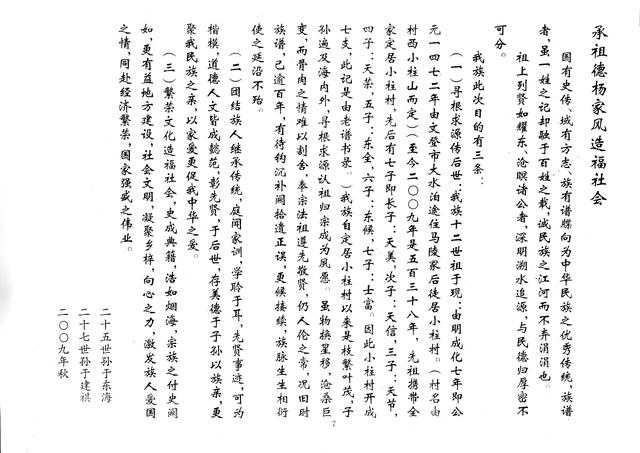 承祖德杨家风造福社会
国有史传、域有方志、族有谱牒向为中华民族之优秀传统，族谱
者，虽一姓之记却融于百姓之载，诚民族之江河而不弃涓涓也。
祖上列贤如耀东、沧暝诸公者，深明溯水追源，与民德归厚密不
可分。
我族此次目的有三条：
（一）寻根求源传后世：我族十二世祖于现；由明成化七年即公
元一四七二年由文登市大水泊途住马陵家后徒居小柱村。（村名由
村西小柱山而定）（至今二〇〇九年是五百三十八年，先祖携带全
家定居小柱村，先后有七子即长子：天美，次子：天信，三子：天节，
四子：天荣，五子：东全，六子：东候，七子：士富。因此小柱村开成
七支，此记是由老谱书录。）我族自定居小柱村以来是枝繁叶茂，子
孙遍及海内外，寻根求源认祖归宗成为夙愿。虽物换星移，沧桑巨
变，而骨肉之情难以割舍，奉宗法祖遵先敬贤，仍人伦之常，况旧时
族谱，已逾百年，有待钩沉补阙拾遗正误，更候接续，族脉生生相衍
使之延沿不殆。
（二）团结族人继承传统，庭闻家训，学聆于耳，先贤事迹，可为
楷模，道德人文皆成懿范，彰先贤，于后世，存美德于子孙以族亲，更
聚我民族之亲，以家爱更促我中华之爱。
（三）繁荣文化造福社会，史成典籍，浩如烟海，宗族之付史阙
如，更有益地方建设，社会文明，凝聚乡梓，向心之力，激发族人爱国
之情，同赴经济繁荣，国家强盛之伟业。
二十五世孙于东海
二十七世孙于建祺
二〇〇九年秋
7